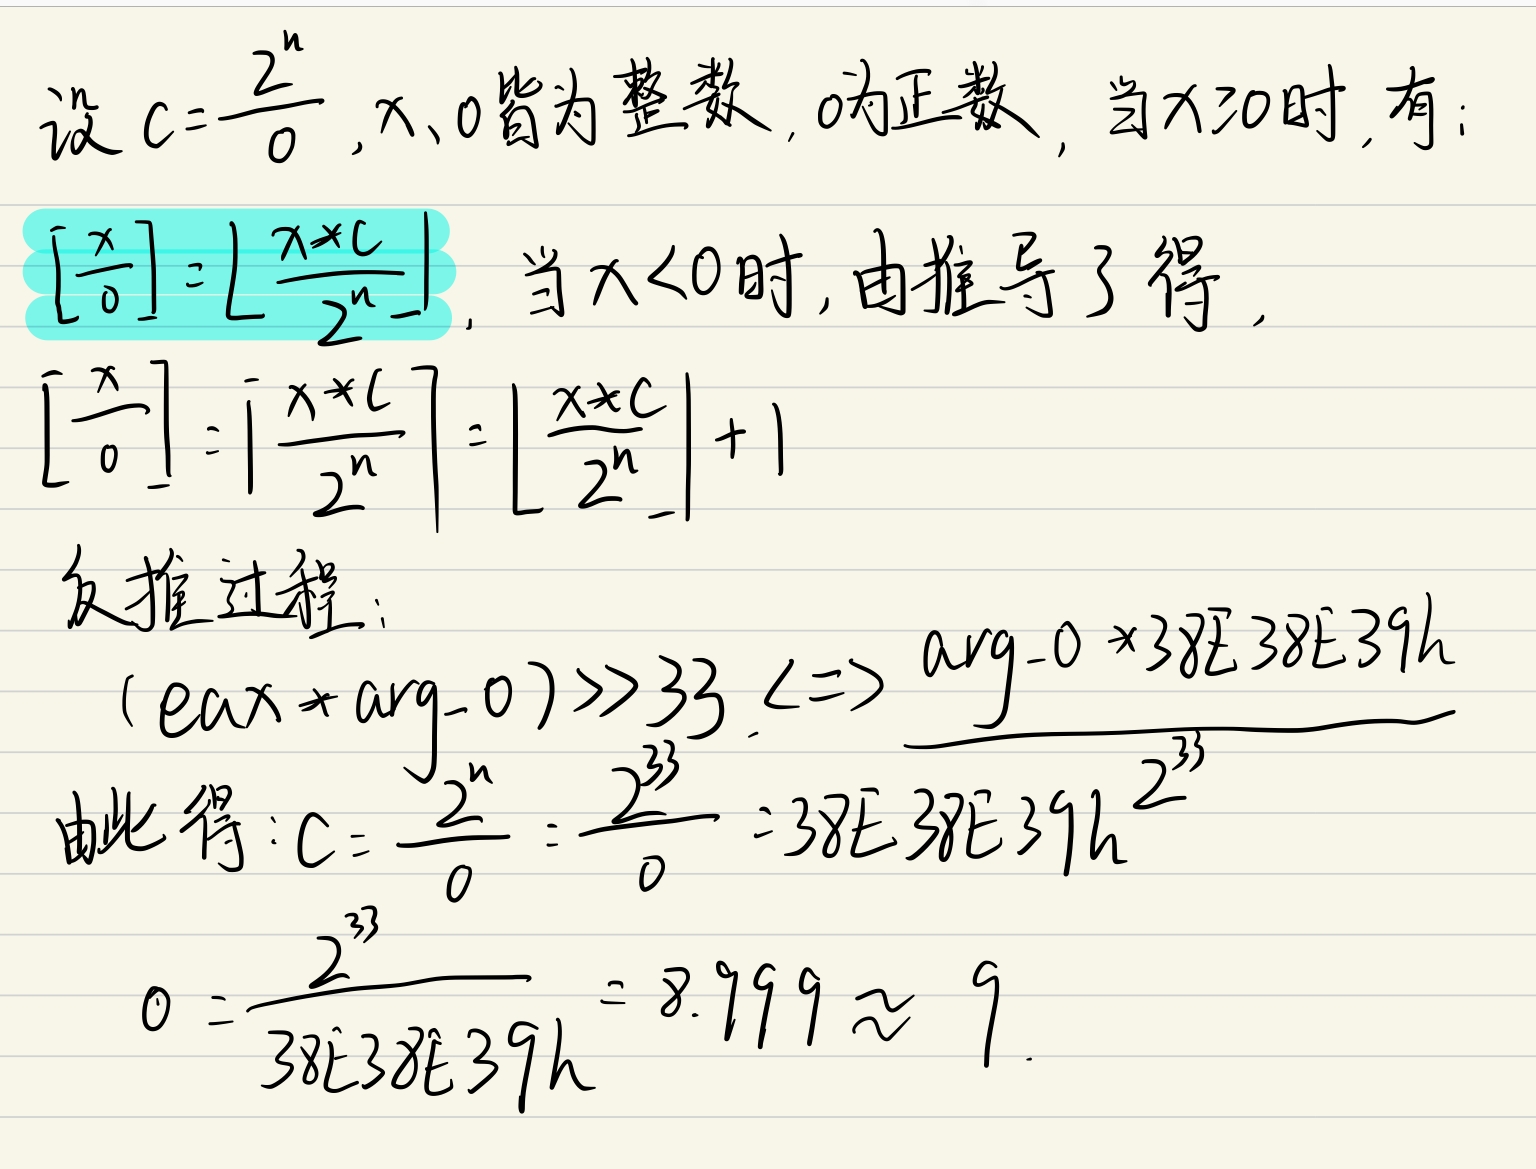 设 c = 2^n / o , x、o皆为整数, o为正数, 当x≥0时, 有:
[x/o] = ⌊x*c / 2^n⌋, 当x<0时, 由推导3得,
[x/o] = ⌈x*c / 2^n⌉ = ⌊x*c / 2^n⌋ + 1
反推过程:
(eax * arg_0) >> 33. <=> arg_0 * 38E38E39h / 2^33
由此得: C = 2^n / o = 2^33 / o = 38E38E39h
o = 2^33 / 38E38E39h = 8.999 ≈ 9.